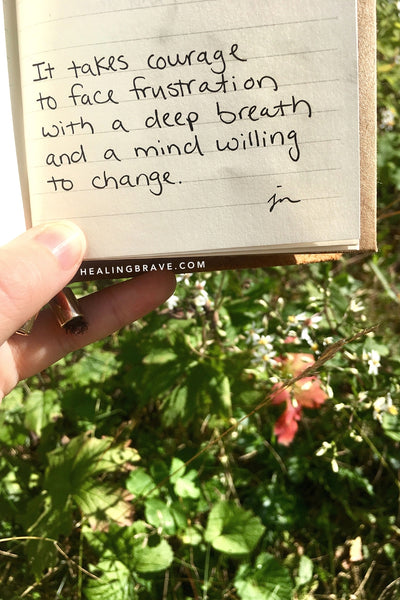 It takes courage
to face frustration
with a deep breath
and a mind willing
to change.
jn
HEALINGBRAVE.COM